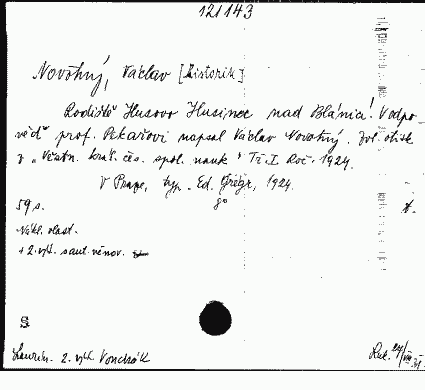 121143
Novotný, Václav [historik]
Rodiště Husovo Husinec nad Blánicí! V odpo
věď prof. Pekařovi napsal Václav Novotný. Zvl. otisk
z „Věstn. král. čes. spol. nauk“ Tř. I. Roč. 1924.
V Praze, typ. Ed. Grégr, 1924.
59 s. 8°
Nákl. vlast.
+ 2. výt. s aut. věnov.
S
2. výt. Vondrák